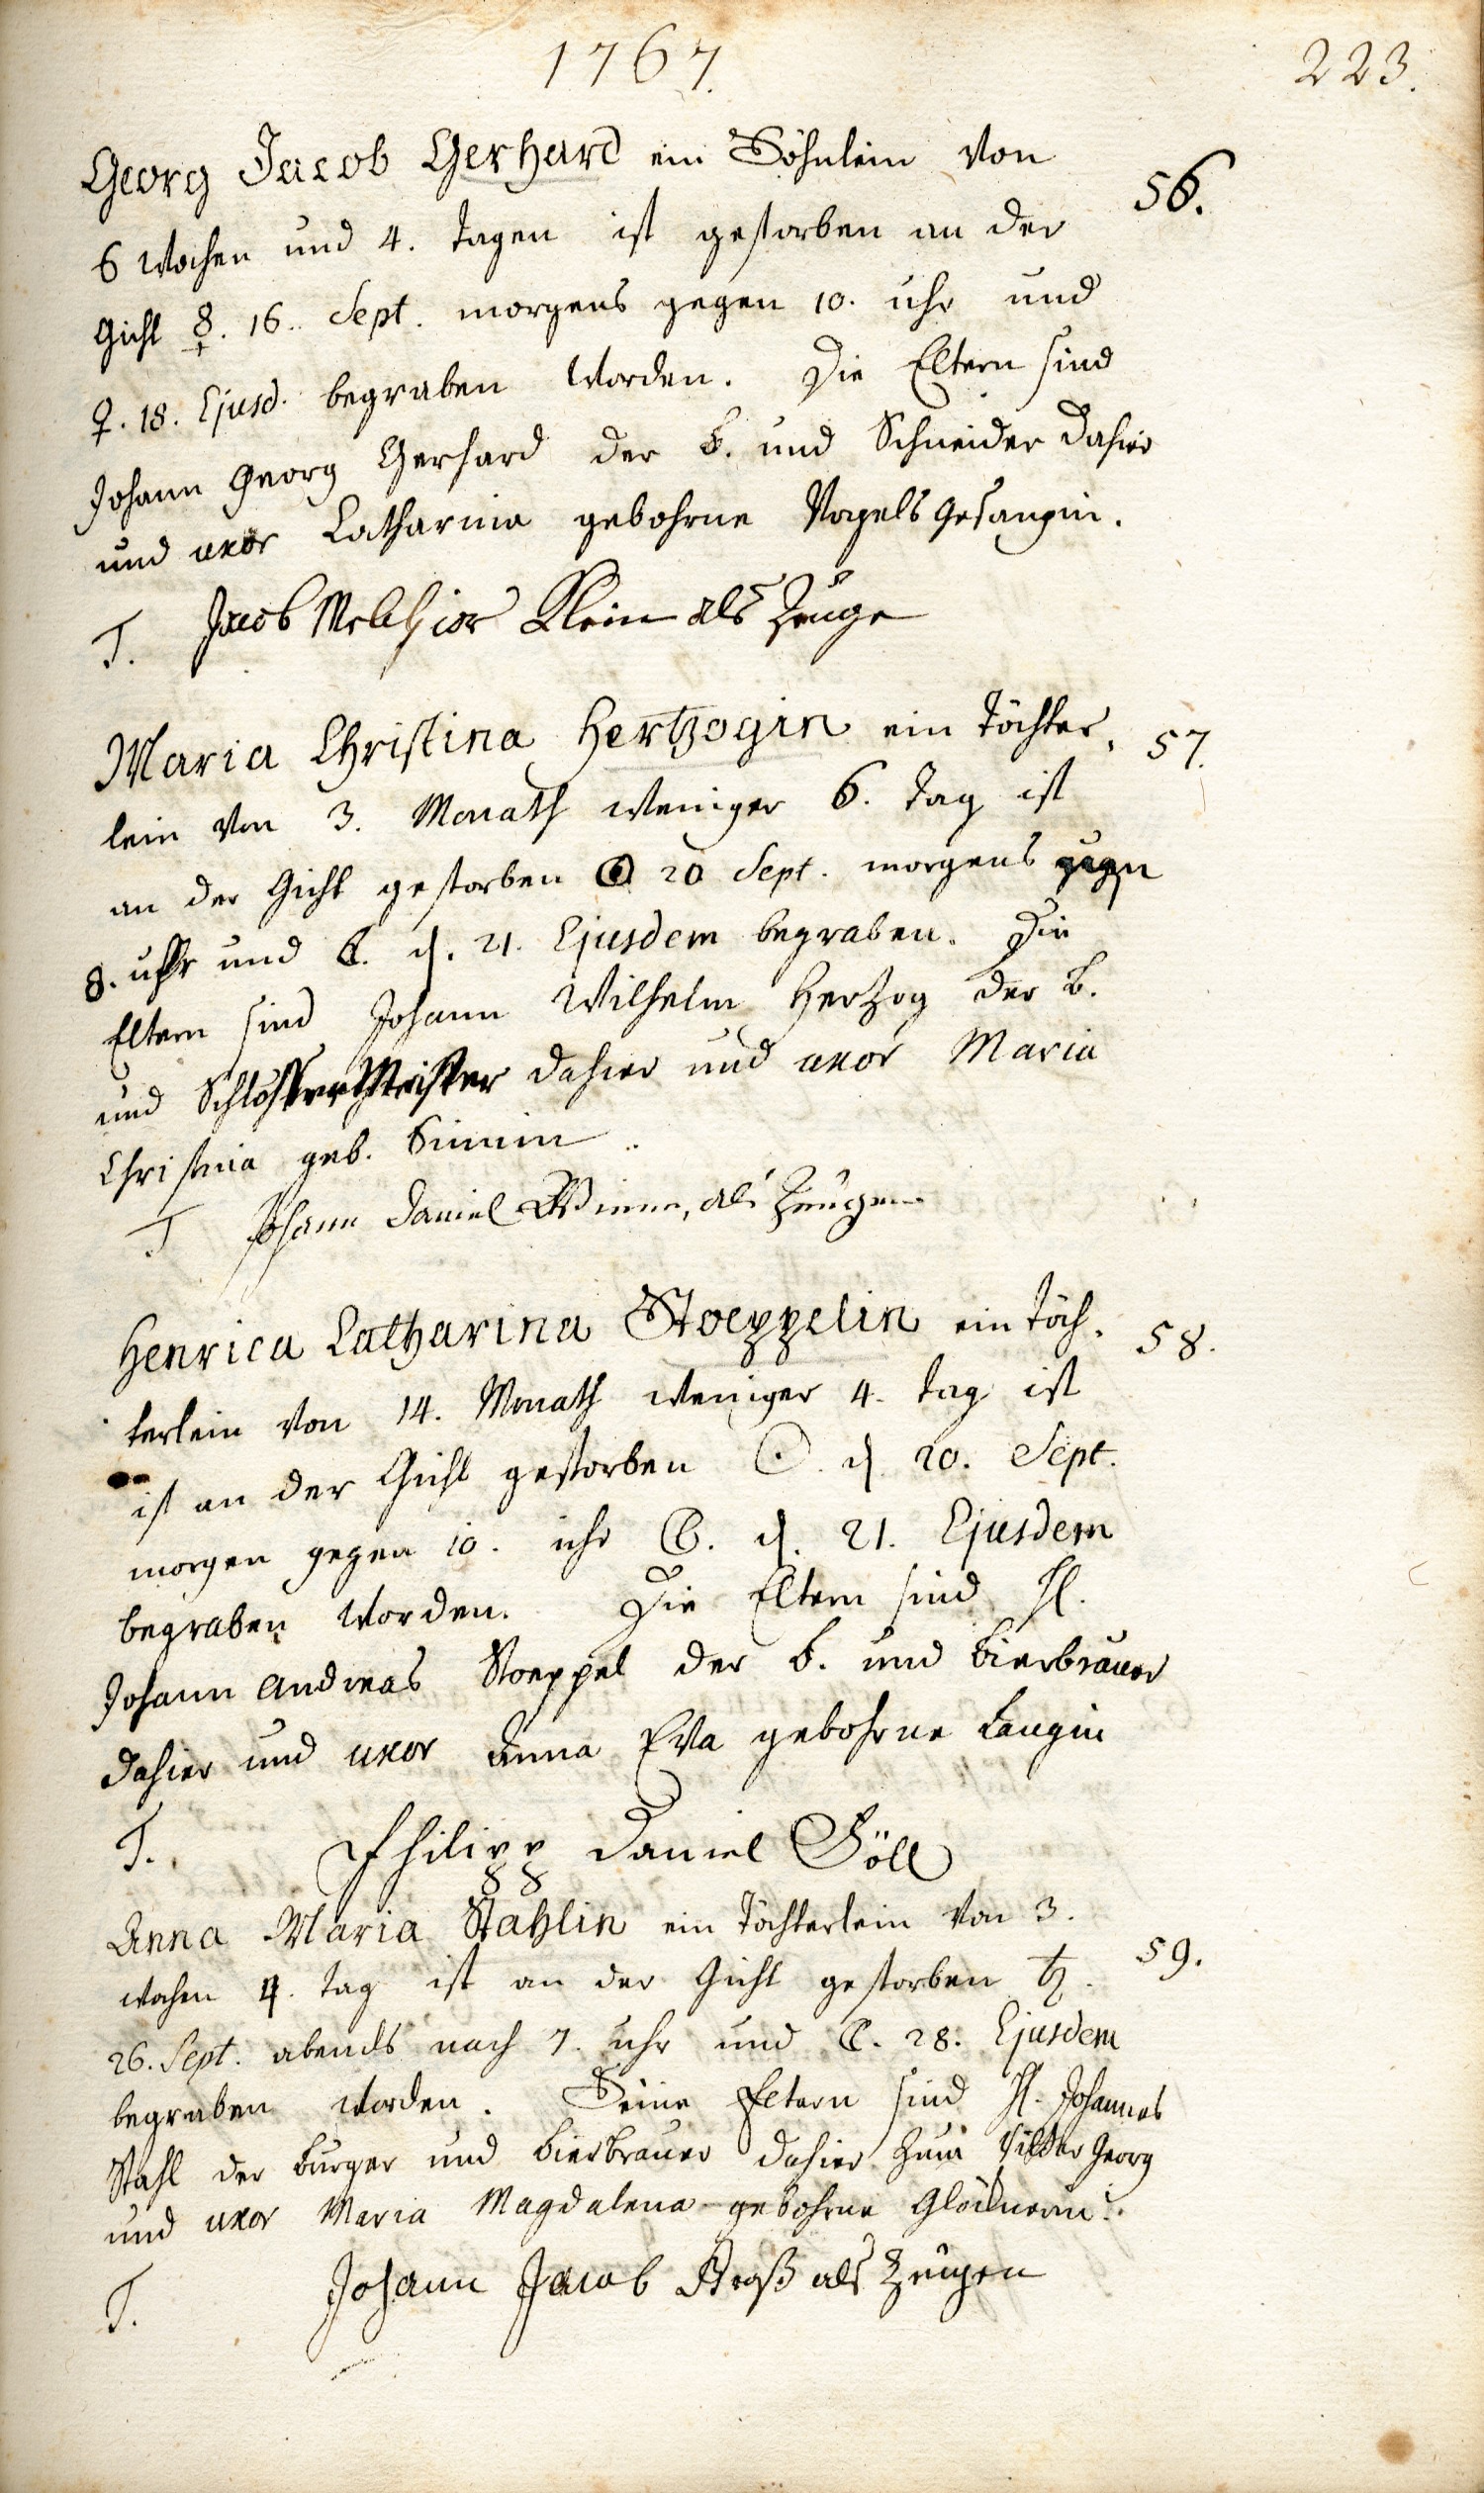 1767.
223.
Georg Jacob Gerhard ein Söhnlein von
56.
6 Wochen und 4. Tagen ist gestorben an der
Gicht ☿. 16. Sept. morgens gegen 10. uhr und
♀. 18. Ejusd. begraben worden. Die Eltern sind
Johann Georg Gerhard der B. und Schneider dahier
und uxor Catharina gebohrne Vogelsgesangin.
T. Jacob Melchior Klein als Zeuge
Maria Christina Hertzogin ein Töchter-
57.
lein von 3. Monath weniger 6. Tag ist
an der Gicht gestorben ☉ 20 Sept. morgens gegen
8. uhr und ☾. d. 21. Ejusdem begraben. Die
Eltern sind Johann Wilhelm Hertzog der B.
und Schlosser Meister dahier und uxor Maria
Christina geb. Simin.
T Johann Daniel als Zeugen
Henrica Catharina Stoeppelin ein Töch-
58.
terlein von 14. Monath weniger 4. Tag ist
ist an der Gicht gestorben ☉. d. 20. Sept.
morgen gegen 10. uhr ☾. d. 21. Ejusdem
begraben worden. Die Eltern sind H.
Johann Andreas Stoeppel der B. und Bierbrauer
dahier und uxor Anna Eva gebohrne Langin
T. Philipp Daniel Göll
Anna Maria Stahlin ein Töchterlein von 3.
59.
wochen 4. tag ist an der Gicht gestorben ♄.
26. Sept. abends nach 7. uhr und ☾. 28. Ejusdem
begraben worden. Seine Eltern sind H. Johannes
Stahl der Burger und Bierbrauer dahier zum Ritter Georg
und uxor Maria Magdalena gebohrne Glöcknerin.
T. Johann Jacob als Zeugen